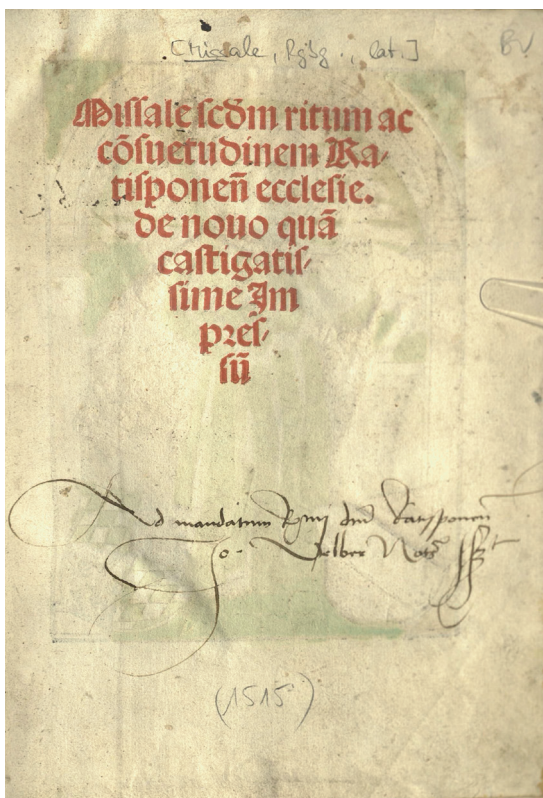 [Missale, Rgbg., lat.]
BV
Missale scd̄m ritum ac
cōsuetudinem Ra⸗
tisponeñ ecclesie.
de nouo quā
castigatis⸗
sime Im
pres⸗
sū
Ad mandatum Rmi dni Ratisponen̄
Jo. Selber Not
(1515)